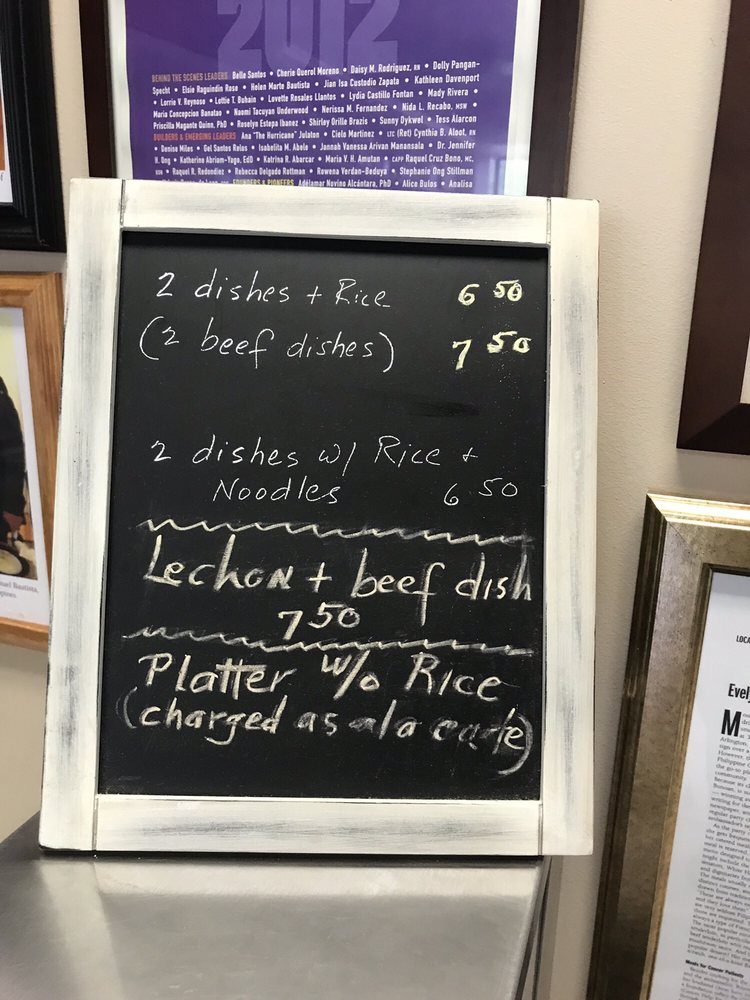 2012
BEHIND THE SCENES LEADERS Belle Santos • Cherie Querol Moreno • Daisy M. Rodriguez, RN • Dolly Pangan-
Specht • Elsie Raguindin Rose • Helen Marte Bautista • Jian Isa Custodio Zapata • Kathleen Davenport
• Lorrie V. Reynoso • Lottie T. Buhain • Lovette Rosales Llantos • Lydia Castillo Fontan • Mady Rivera •
Maria Concepcion Banatao • Naomi Tacuyan Underwood • Nerissa M. Fernandez • Nida L. Recabo, MSN •
Priscilla Magante Quinn, PhD • Roselyn Estepa Ibanez • Shirley Orille Brazis • Sunny Dykwel • Tess Alarcon
BUILDERS & EMERGING LEADERS Ana "The Hurricane" Julaton • Cielo Martinez • LTC (Ret) Cynthia B. Aloot, RN
• Denise Miles • Gel Santos Relos • Isabelita M. Abele • Jannah Vanessa Arivan Manansala • Dr. Jennifer
H. Ong • Katherine Abriam-Yago, EdD • Katrina R. Abarcar • Maria V. H. Amutan • CAPP Raquel Cruz Bono, MC,
• Raquel R. Redondiez • Rebecca Delgado Rottman • Rowena Verdan-Beduya • Stephanie Ong Stillman
FOUNDERS & PIONEERS • Adelamar Novino Alcántara, PhD • Alice Bulos • Analisa
2 dishes + Rice 6 50
(2 beef dishes) 7 50
2 dishes w/ Rice +
Noodles 6 50
Lechon + beef dish
7 50
Platter w/o Rice
(charged as ala carte)
nuel Bautista,
LOCA
Evel
Meals for Cancer Patients